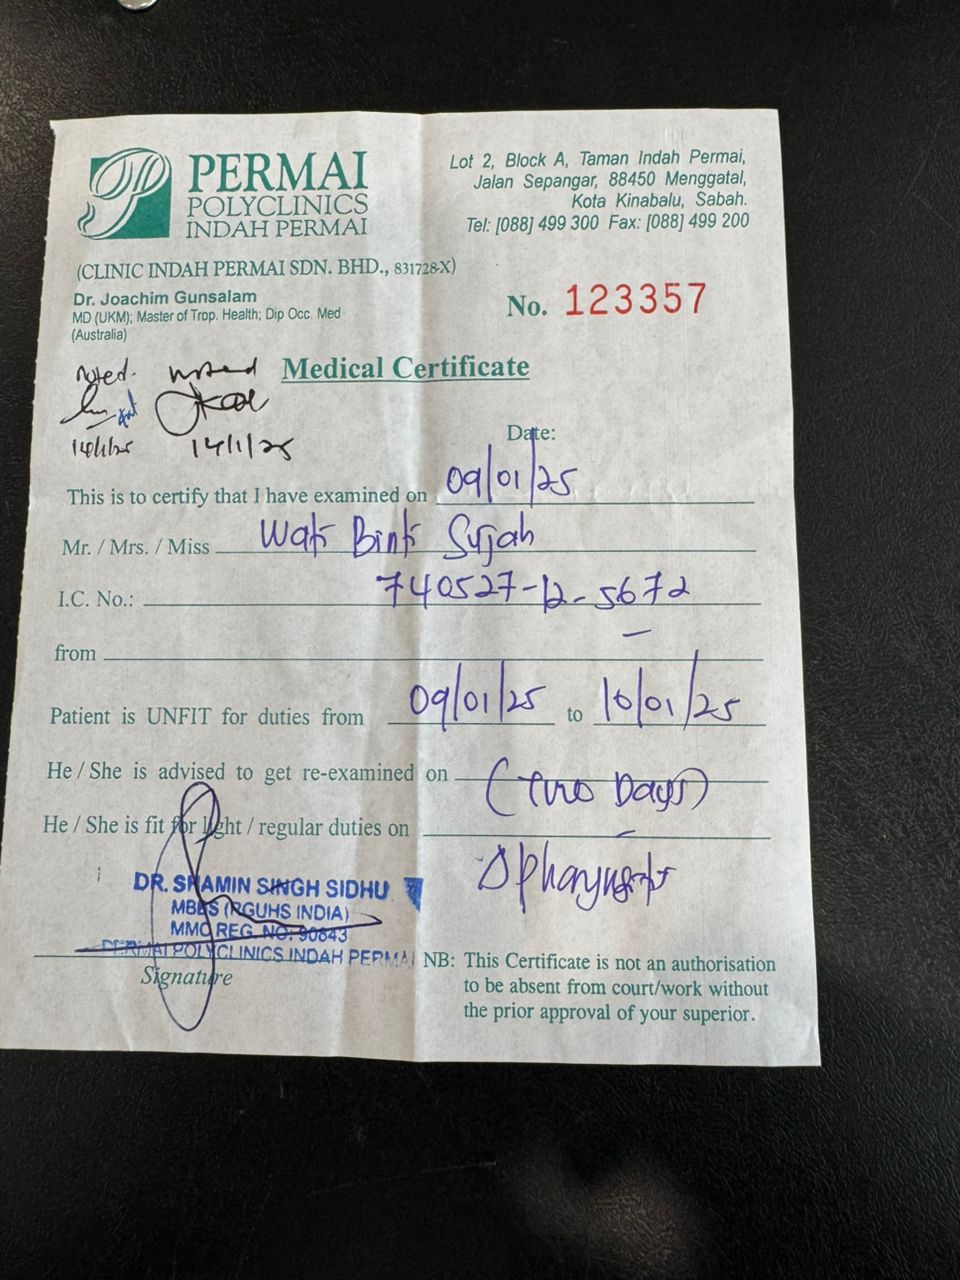 PERMAI
POLYCLINICS
INDAH PERMAI
Lot 2, Block A, Taman Indah Permai,
Jalan Sepangar, 88450 Menggatal,
Kota Kinabalu, Sabah.
Tel: [088] 499 300 Fax: [088] 499 200
(CLINIC INDAH PERMAI SDN. BHD., 831728-X)
Dr. Joachim Gunsalam
MD (UKM); Master of Trop. Health; Dip Occ. Med
(Australia)
No. 123357
Noted. noted
14/1/25 14/1/25
Medical Certificate
Date:
This is to certify that I have examined on 09/01/25
Mr. / Mrs. / Miss Wati Binti Sujah
I.C. No.: 740527-12-5672
from –
Patient is UNFIT for duties from 09/01/25 to 10/01/25
He / She is advised to get re-examined on (Two Days)
He / She is fit for light / regular duties on –
DR. SHAMIN SINGH SIDHU
MBBS (RGUHS INDIA)
MMC REG. NO: 90843
PERMAI POLYCLINICS INDAH PERMAI
Signature
NB: This Certificate is not an authorisation
to be absent from court/work without
the prior approval of your superior.